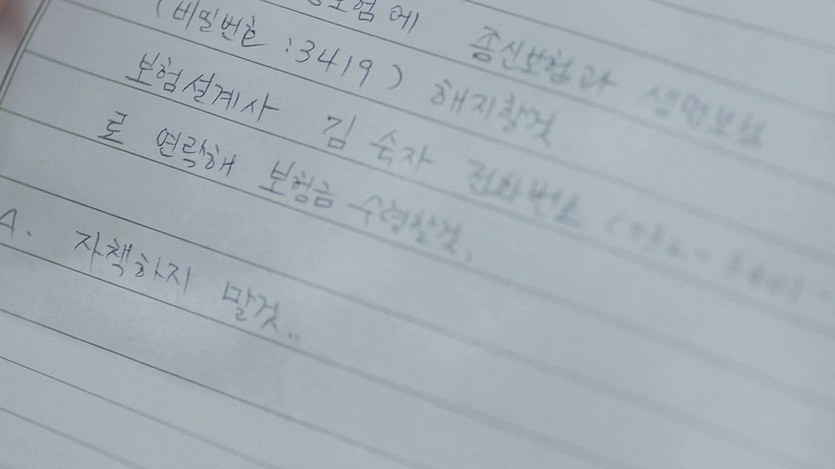 보험에 종신보험과 생명보험
(비밀번호 : 3419) 해지할것
보험설계사 김숙자 전화번호 (032-
로 연락해 보험금 수령할것.
4. 자책하지 말것..